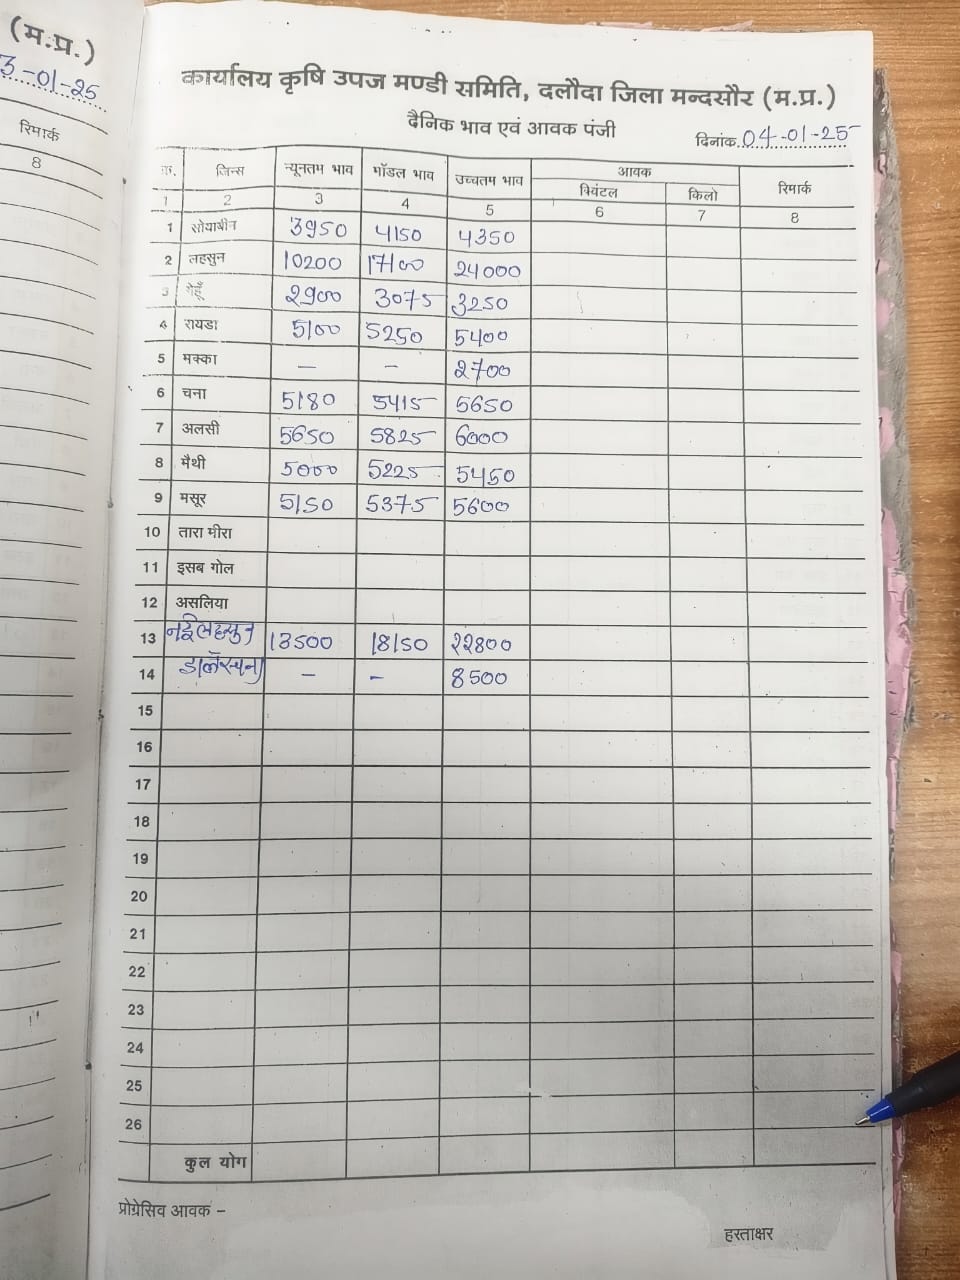 (म.प्र.)
3-01-25
रिमार्क
8
कार्यालय कृषि उपज मण्डी समिति, दलौदा जिला मन्दसौर (म.प्र.)
दैनिक भाव एवं आवक पंजी
दिनांक 04-01-25
क्र. जिन्स न्यूनतम भाव मॉडल भाव उच्चतम भाव आवक रिमार्क
क्विंटल किलो
1 2 3 4 5 6 7 8
1 सोयाबीन 3950 4150 4350
2 लहसुन 10200 17100 24000
3 गेहूँ 2900 3075 3250
4 रायडा 5100 5250 5400
5 मक्का — - 2700
6 चना 5180 5415 5650
7 अलसी 5650 5825 6000
8 मैथी 5000 5225 5450
9 मसूर 5150 5375 5600
10 तारा मीरा
11 इसब गोल
12 असलिया
13 नईलहसुन 13500 18150 22800
14 — - 8500
15
16
17
18
19
20
21
22
23
24
25
26
कुल योग
प्रोग्रेसिव आवक -
हस्ताक्षर